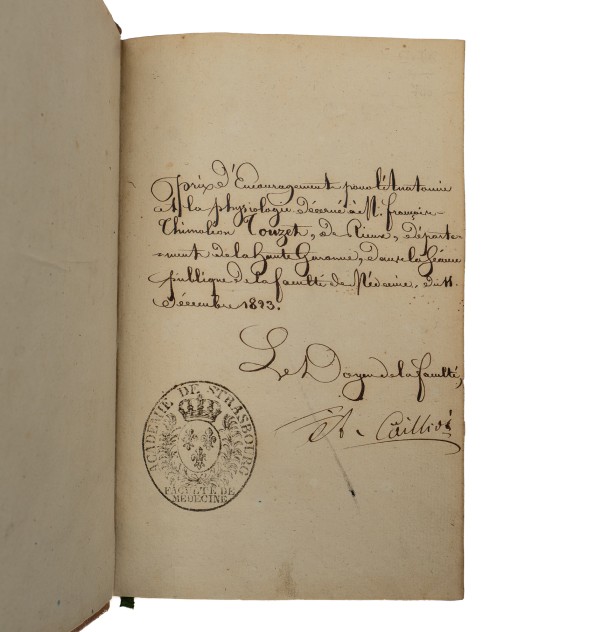 Prix d'Encouragement pour l'Anatomie
et la physiologie décerné à M. françois-
Thimoléon Touzet, de Rieux, départe-
ment de la haute Garonne, dans la séance
publique de la faculté de Médecine, du 11.
Décembre 1823.
Le Doyen de la faculté,
Cailliot
ACADEMIE DE STRASBOURG
FACULTÉ DE
MÉDECINE